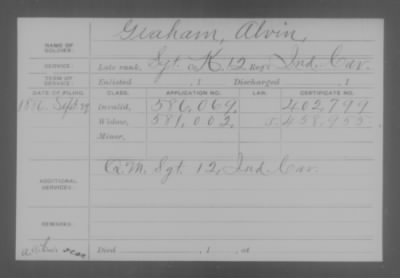 Graham, Alvin,
NAME OF SOLDIER:
SERVICE: Late rank, Sgt. Co. K 12 Reg't Ind. Cav.
TERM OF SERVICE: Enlisted , 1 Discharged , 1
DATE OF FILING. CLASS. APPLICATION NO. LAW. CERTIFICATE NO.
Invalid, 586,069. 402,799
Widow, 581,002. 458,955
Minor,
ADDITIONAL SERVICES: Q.M. Sgt. 12, Ind. Cav.
REMARKS:
Died , 1 , at